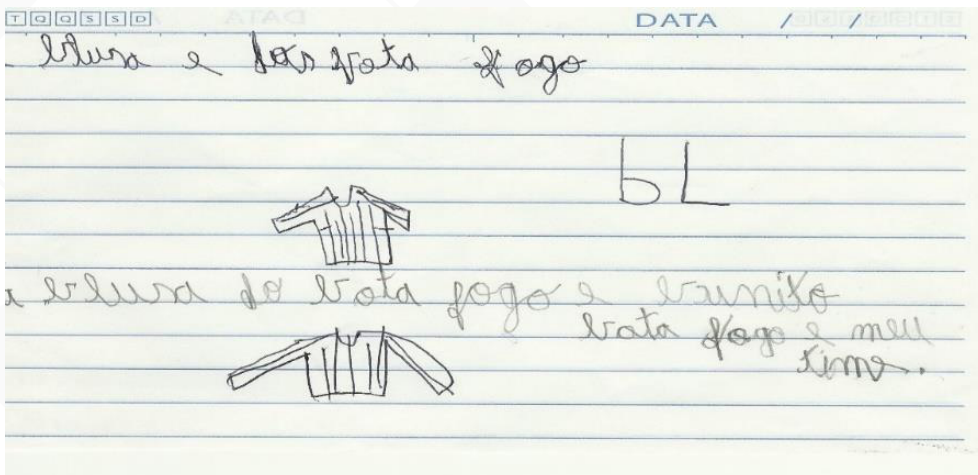 T Q Q S S D DATA / /
blusa e do fogo
bL
a blusa do bota fogo e bunito
bota fogo e meu
time.